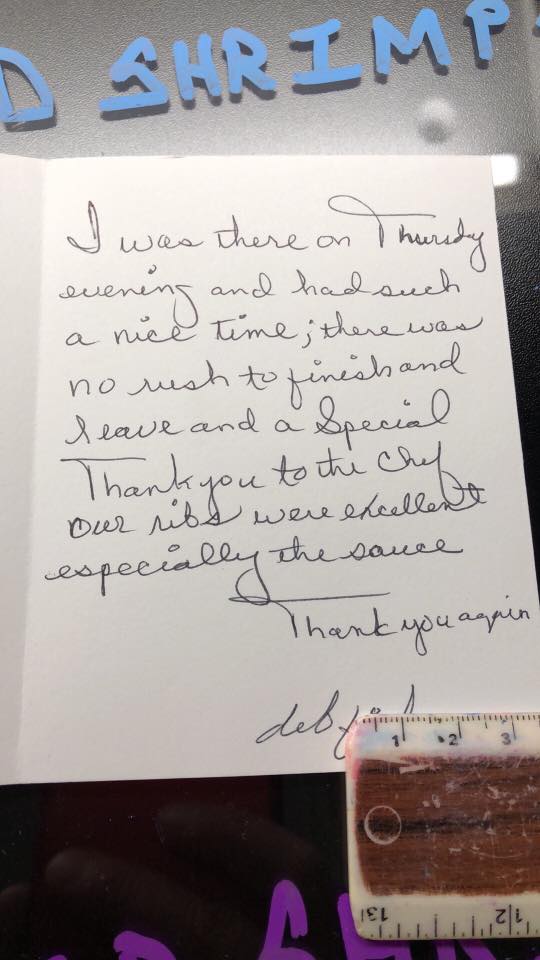 D SHRIMP
I was there on Thursday
evening and had such
a nice time; there was
no rush to finish and
leave and a Special
Thank you to the Chef
our ribs were excellent
especially the sauce
Thank you again
deb
1 2 3
13 12
SH